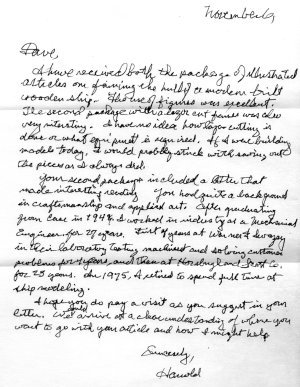 November 9
Dave
I have received both the package of illustrated
articles on framing the hull of a modern built
wooden ship. The use of figures was excellent.
The second package with a laser cut frames was also
very interesting. I have no idea how laser cutting is
done or what equipment is required. If I were building
models today, I would probably stick with sawing out
the pieces as I always did.
Your second package included a letter that
made interesting reading. You had quite a background
in craftsmanship and applied art. After graduating
from Case in 1948 I worked in industry as a Mechanical
Engineer for 27 years. First years at Warner & Swasey
in their laboratory testing machines and solving customer
problems for years, and then at
for 25 years. In 1975, I retired to spend full time at
ship modeling.
I hope you do pay a visit as you suggest in your
letter. We'll arrive at a close understanding of where you
want to go with your article and how I might help
Sincerely,
Harold